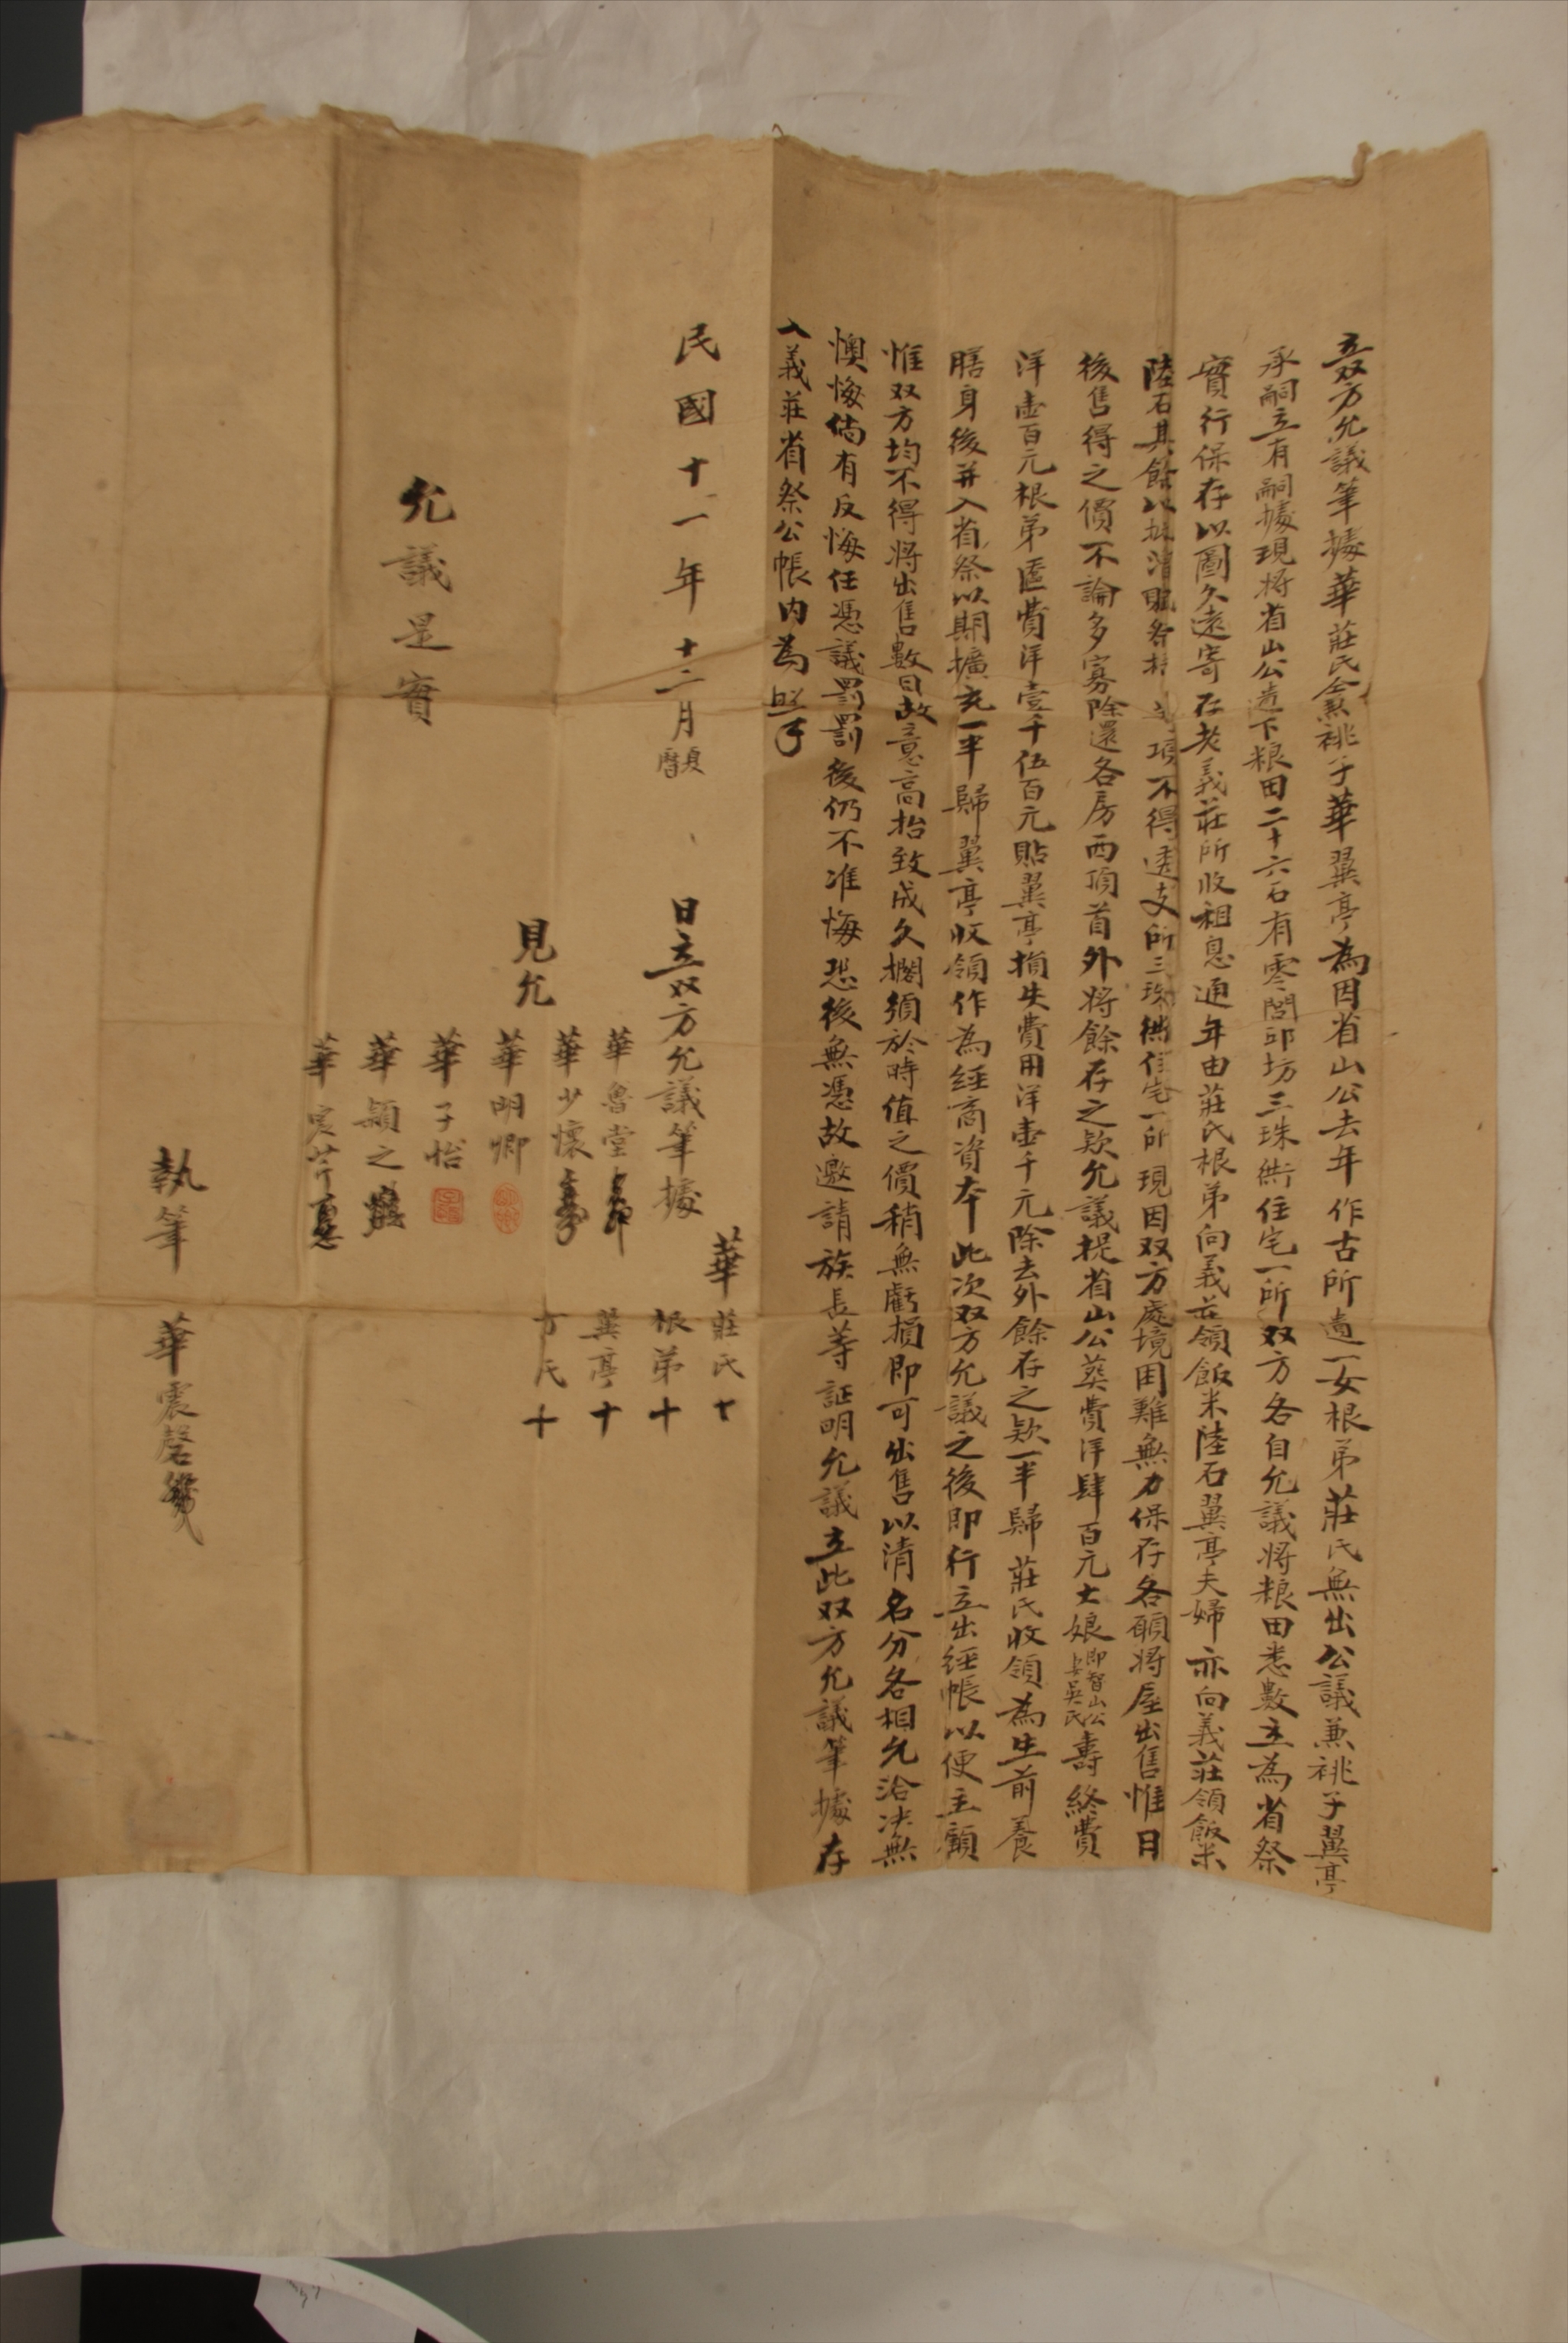 立双方允議筆據華莊氏仝兼祧子華翼亭為因省山公去年作古所遺一女根弟莊氏無出公議兼祧子翼亭
承嗣立有嗣據現將省山公遺下粮田二十六石有零閶邱坊三珠衖住宅一所双方各自允議將粮田悉數立為省祭
實行保存以圖久遠寄存老義莊所收租息通年由莊氏根弟向義莊領飯米陸石翼亭夫婦亦向義莊領飯米
陸石其餘以抵漕賦各項不得透支所三珠衖住宅一所現因双方處境困難無力保存各願將屋出售惟日
後售得之價不論多寡除還各房西頂首外將餘存之欵允議提省山公葬費洋肆百元大娘即智山公吳氏壽終費
洋壹百元根弟匳費洋壹千伍百元貼翼亭損失費用洋壹千元除去外餘存之欵一半歸莊氏收領為生前養
膳身後并入省祭以期擴充一半歸翼亭收領作為經商資本此次双方允議之後即行立出經帳以便主顧
惟双方均不得將出售數目故意高抬致成久擱須於時值之價稍無虧損即可出售以清名分各相允洽决無
懊悔倘有反悔任憑議罰罰後仍不准悔恐後無憑故邀請族長等証明允議立此双方允議筆據存
入義莊省祭公帳內為照
民國十一年十二月夏曆 日立双方允議筆據
華莊氏十
根弟十
翼亭十
方氏十
見允
華魯堂
華少懷
華明卿
華子怡
華穎之
華
允議是實
執筆 華震磬